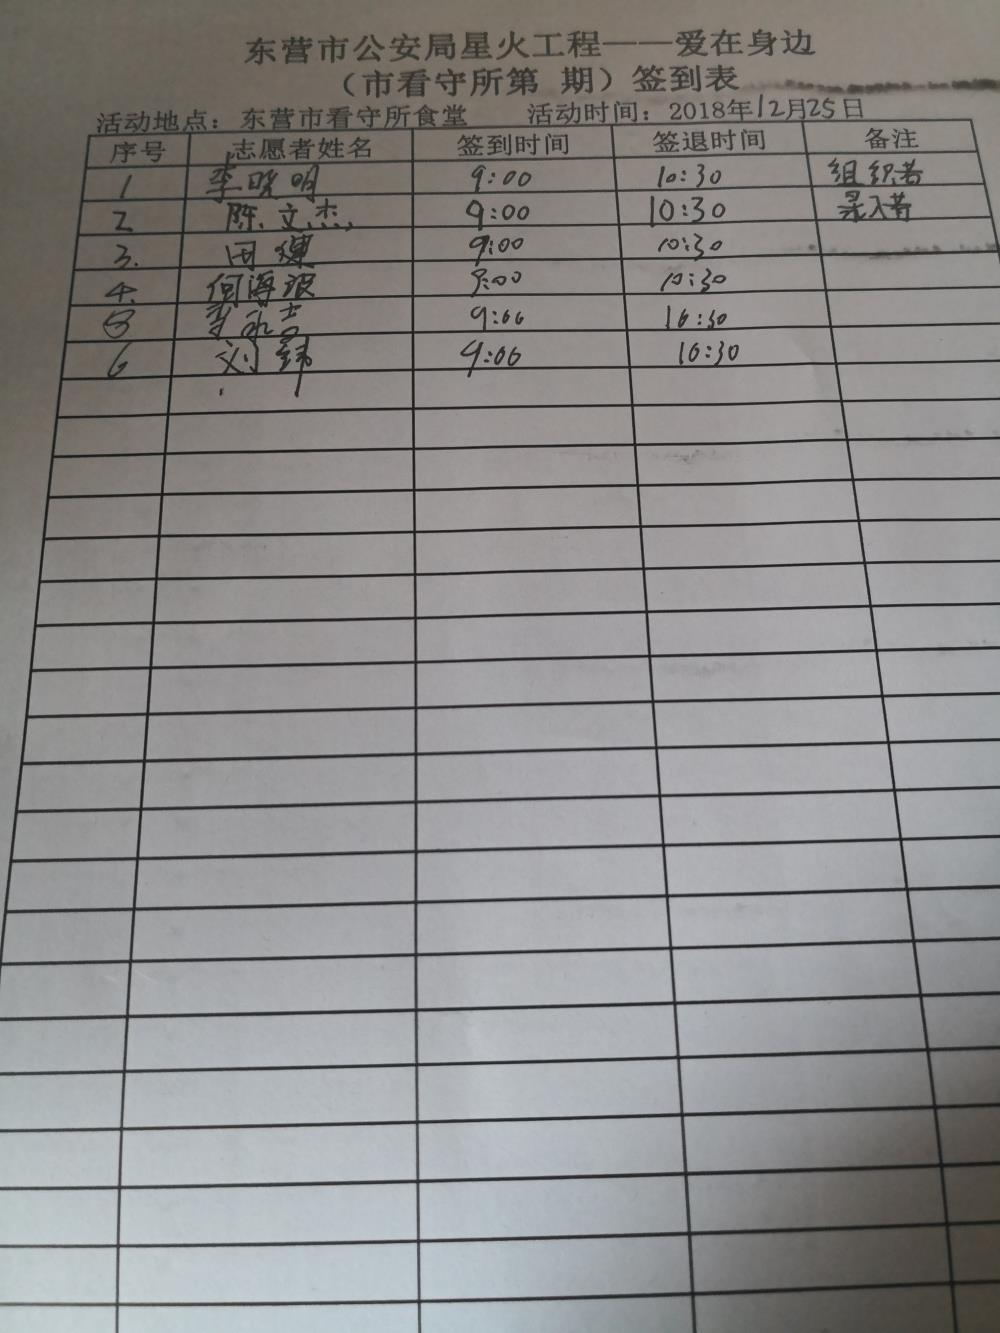 东营市公安局星火工程——爱在身边
（市看守所第 期）签到表
活动地点：东营市看守所食堂 活动时间：2018年12月25日
序号 志愿者姓名 签到时间 签退时间 备注
1 李晓明 9:00 10:30 组织者
2 陈文杰 9:00 10:30 录入者
3. 田 9:00 10:30
4. 何海波 9:00 10:30
5 李永吉 9:00 10:30
6 刘 9:00 10:30